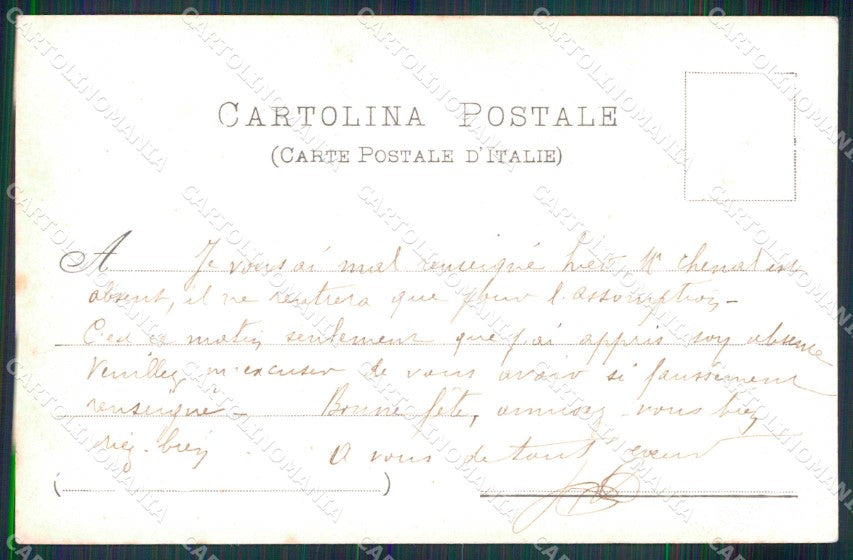 CARTOLINA POSTALE
(CARTE POSTALE D'ITALIE)
A Je vous ai mal renseigné hier, Mr Chenal est
absent, il ne rentrera que pour l'assomption -
C'est ce matin seulement que j'ai appris son absence
Veuillez m'excuser de vous avoir si faussement
renseigné - Bonne fête, amusez-vous bien
riez-bien A vous de tout cœur
CARTOLINOMANIA